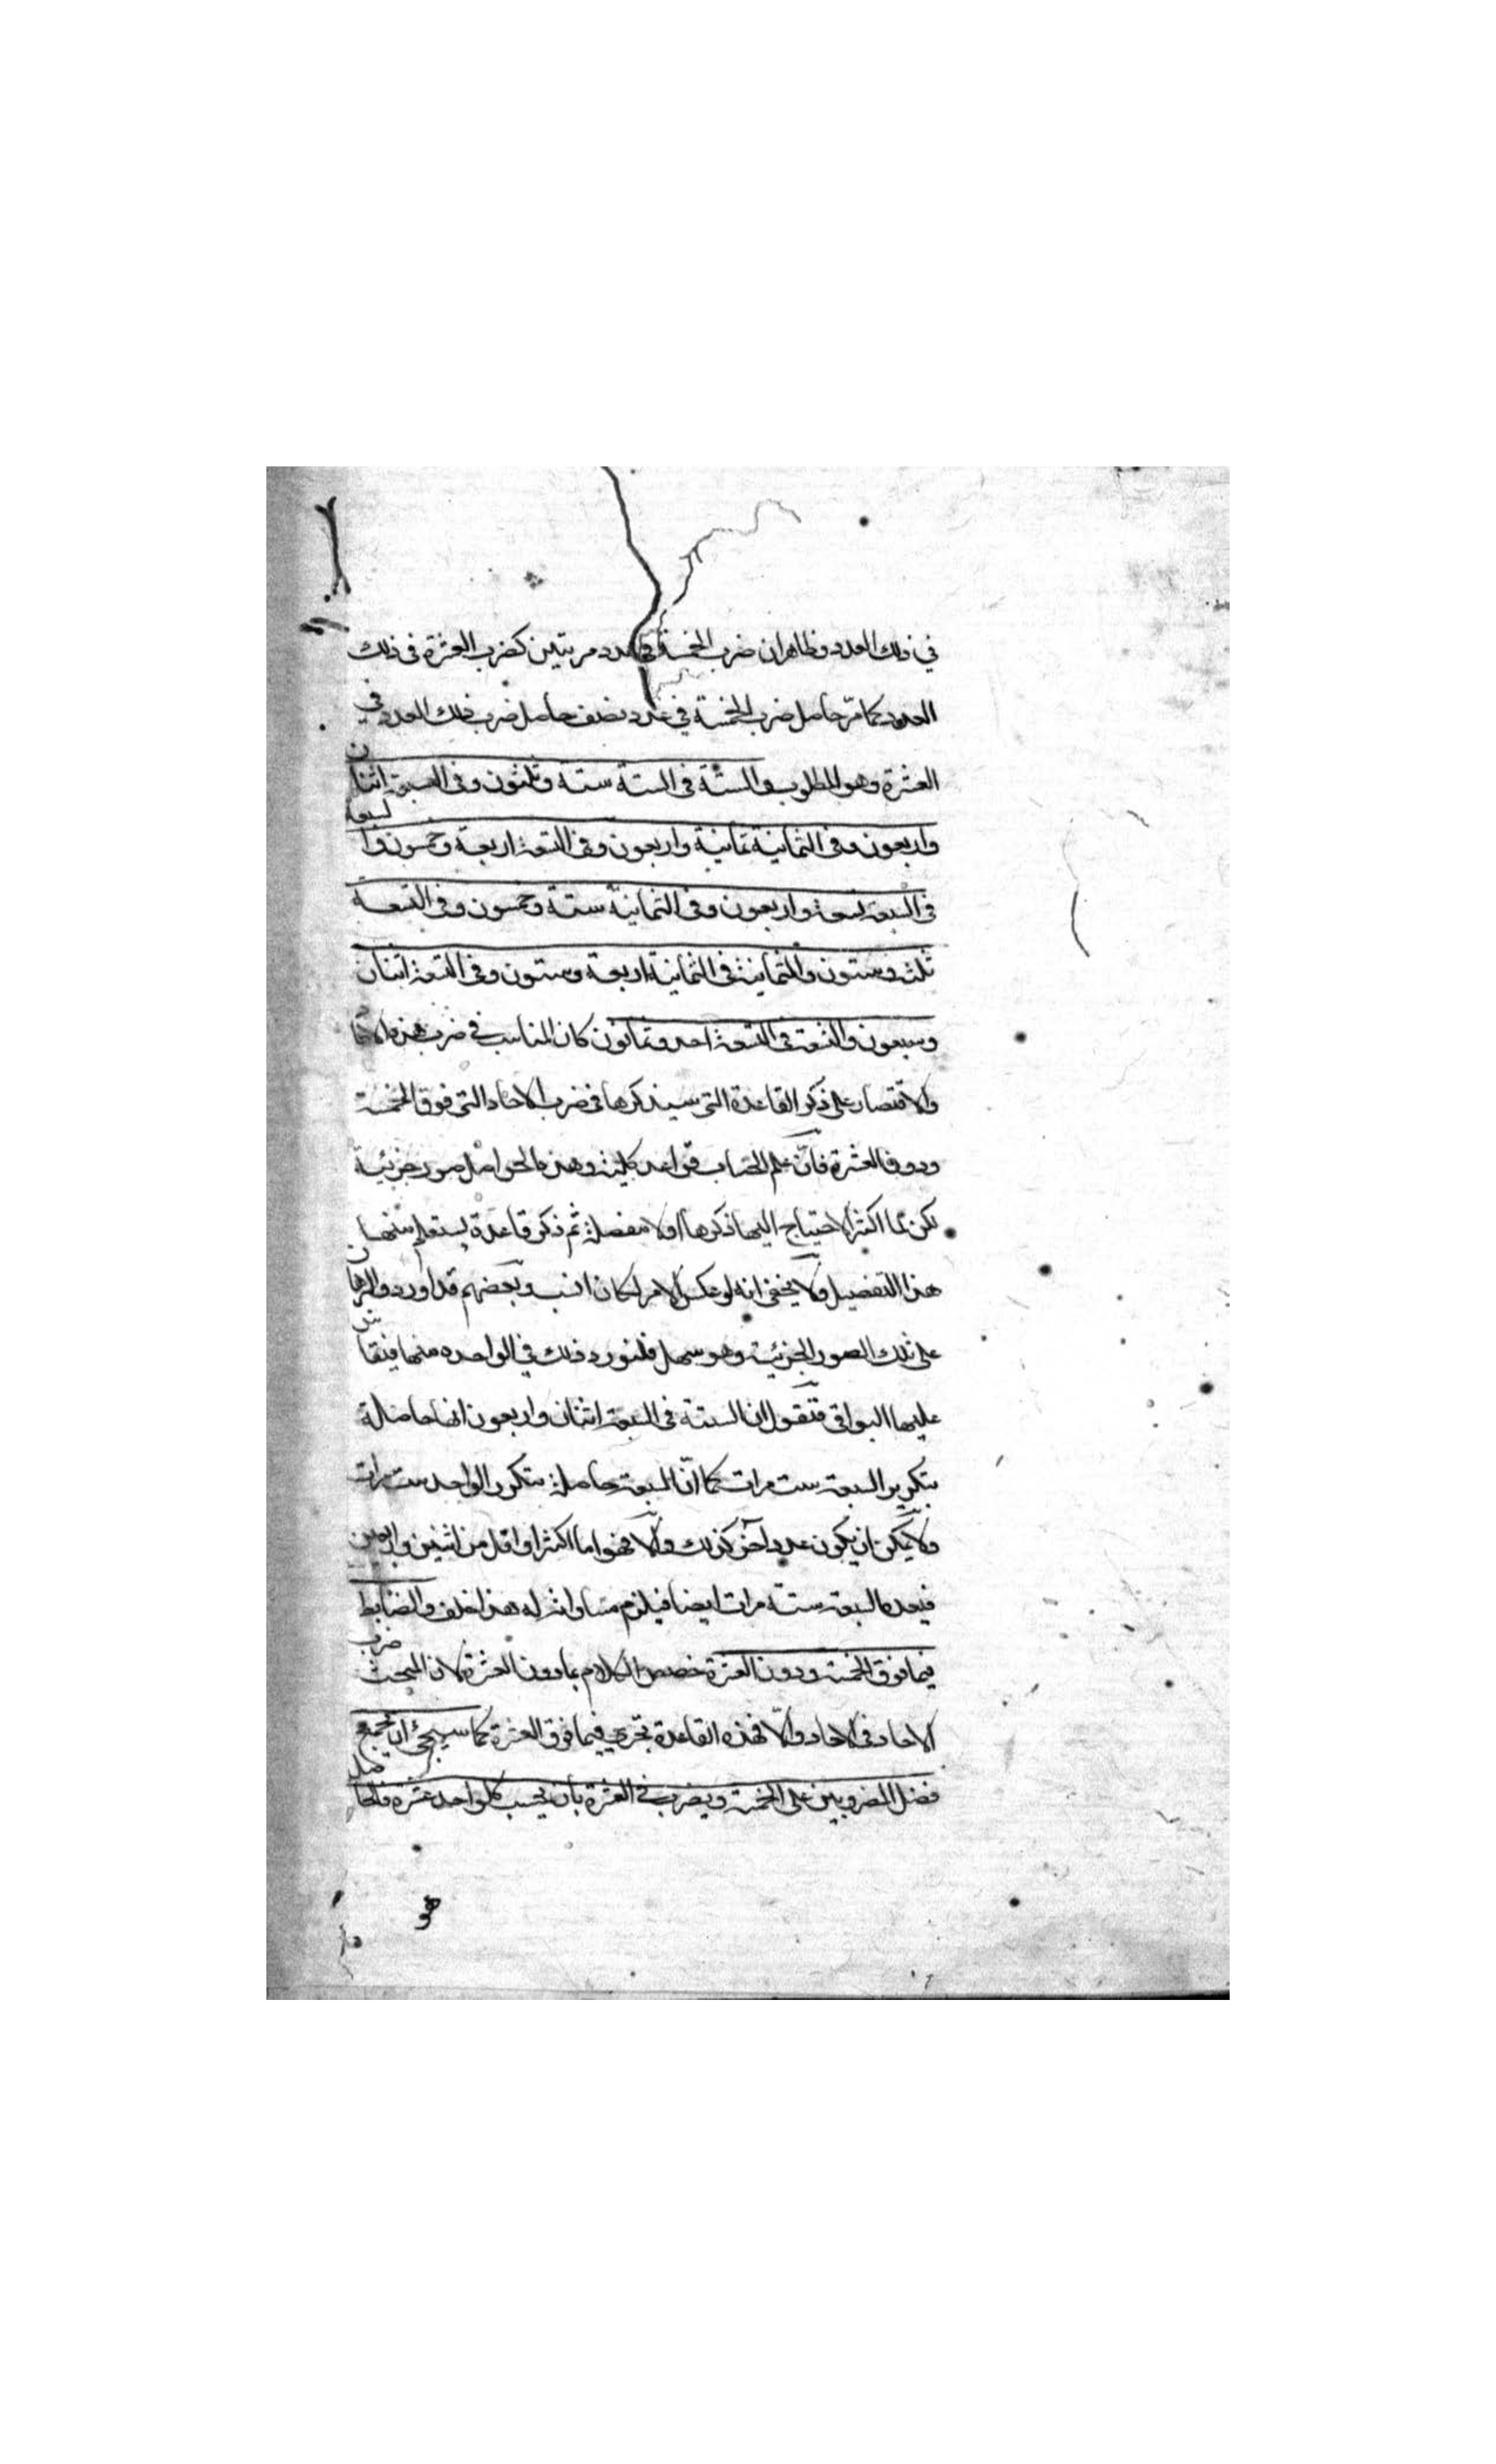 في ذلك العدد وظاهر ان ضرب الخمسة في عدد مرتين كضرب العشرة في ذلك
العدد كما مرّ حاصل ضرب الخمسة في عدد نصف حاصل ضرب ذلك العدد في
العشرة وهو المطلوب والستة في الستة ستة وثلثون وفي السبعة اثنان
واربعون وفي الثمانية ثمانية واربعون وفي التسعة اربعة وخمسون والسبعة
في السبعة تسعة واربعون وفي الثمانية ستة وخمسون وفي التسعة
ثلث وستون والثمانية في الثمانية اربعة وستون وفي التسعة اثنان
وسبعون والتسعة في التسعة احد وثمانون كان المناسب في ضرب هذه الاحاد
والاقتصار على ذكر القاعدة التي سيذكرها في ضرب الاحاد التي فوق الخمسة
ودون العشرة فانّ علم الحساب قواعد كلية وهذه الحواصل صور جزئية
لكن لما اكثر الاحتياج اليها ذكرها اولا مفصلة ثم ذكر قاعدة يستعلم منها
هذا التفصيل ولا يخفى انه لو عكس الامر لكان انسب وبعضهم قد اورد والبرهان
على تلك الصور الجزئية وهو سهل فلنورد ذلك في الواحدة منها فيقاس
عليها البواقي فنقول ان الستة في السبعة اثنان واربعون انها حاصلة
بتكرير السبعة ست مرات كما انّ السبعة حاصلة بتكرر الواحد ست مرات
ولا يمكن ان يكون عدد آخر كذلك والّا فهو اما اكثر او اقل من اثنين واربعين
فيعده السبعة ستة مرات ايضا فيلزم مساواته له هذا خلف والضابط
فيما فوق الخمسة ودون العشرة خصص الكلام بما دون العشرة لان المبحث ضرب
الاحاد في الاحاد والّا فهذه القاعدة تجري فيما فوق العشرة كما سيجئ ان تجمع
فضل المضروبين على الخمسة ويضرب في العشرة بان يحسب كل واحد عشرة فالحاصل
هو